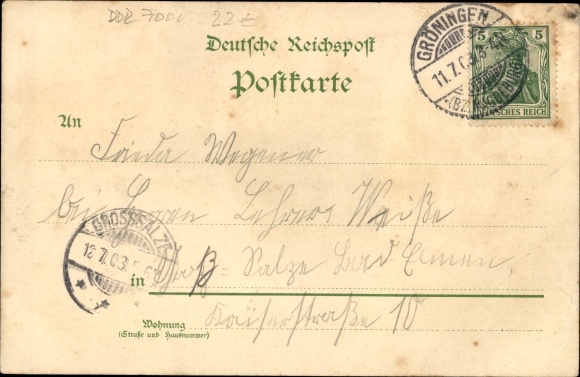 DDR 7000 22 €
Deutsche Reichspost
Postkarte
GRÖNINGEN
11.7.03
(BZ. MAGDEBURG)
5 5
DEUTSCHES REICH
An
Frieda Wegener
bei Herrn Lehrer Weiße
GROSS SALZE
12.7.03.
in Groß-Salze Bad Elmen,
Kaiserstraße 10
Wohnung
(Straße und Hausnummer)